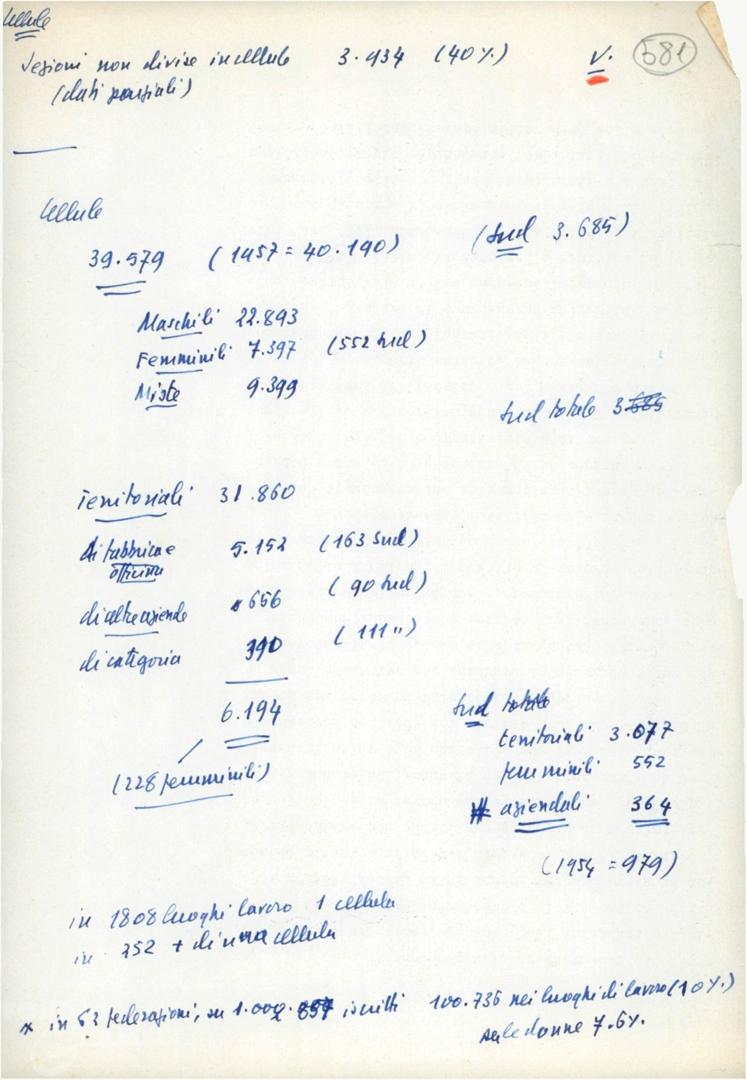 Cellule
Sezioni non divise in cellule 3.434 (40%) V. 581
(dati parziali)
Cellule
39.579 (1957 = 40.190) (Sud 3.685)
Maschili 22.893
Femminili 7.397 (552 sud)
Miste 9.399
Sud totale 3685
Territoriali 31.860
di fabbrica e 5.152 (163 sud)
officina
di altre aziende 656 (90 sud)
di categoria 390 (111 ")
6.194
(228 femminili)
Sud totale
territoriali 3.077
femminili 552
# aziendali 364
(1954 = 979)
in 1808 luoghi lavoro 1 cellula
in 752 + di una cellula
x in 63 federazioni, su 1.002.857 iscritti 100.736 nei luoghi di lavoro (10%)
sulle donne 7.6%.